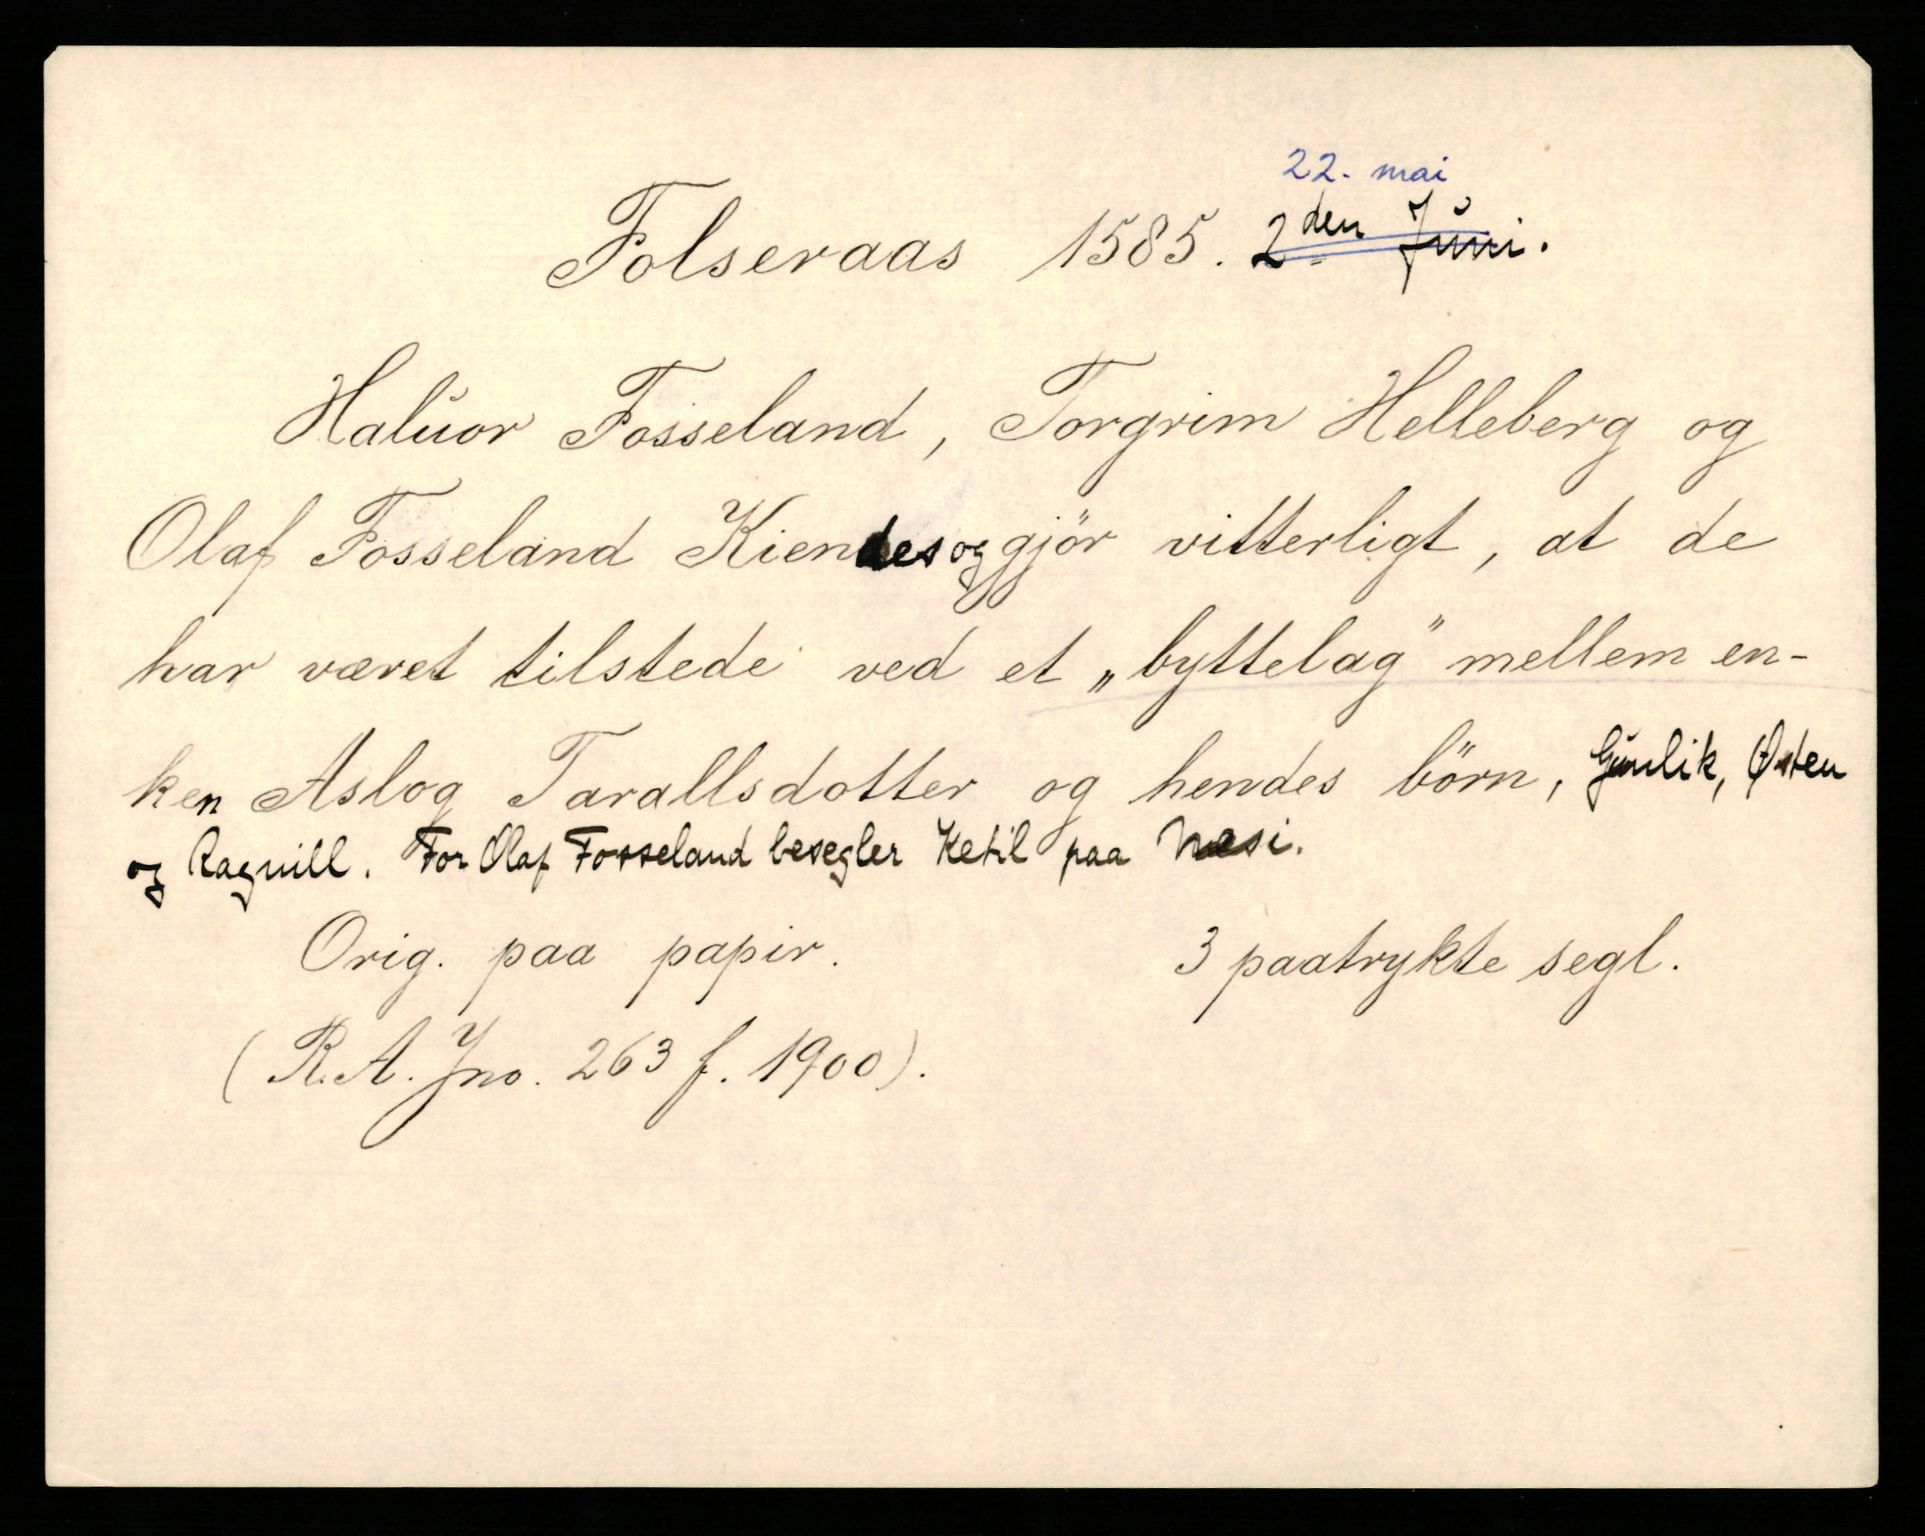 22. mai
Folseraas 1585. 2den Juni.
Haluor Fosseland, Torgrim Helleberg og
Olaf Fosseland Kiendes og gjör vitterligt, at de
har været tilstede ved et „byttelag" mellem en-
ken Aslog Tarallsdotter og hendes börn, Gunlik, Østen
og Ragnill. For Olaf Fosseland besegler Ketil paa Næsi.
Orig. paa papir. 3 paatrykte segl.
(R.A. Jno. 263 f. 1900).